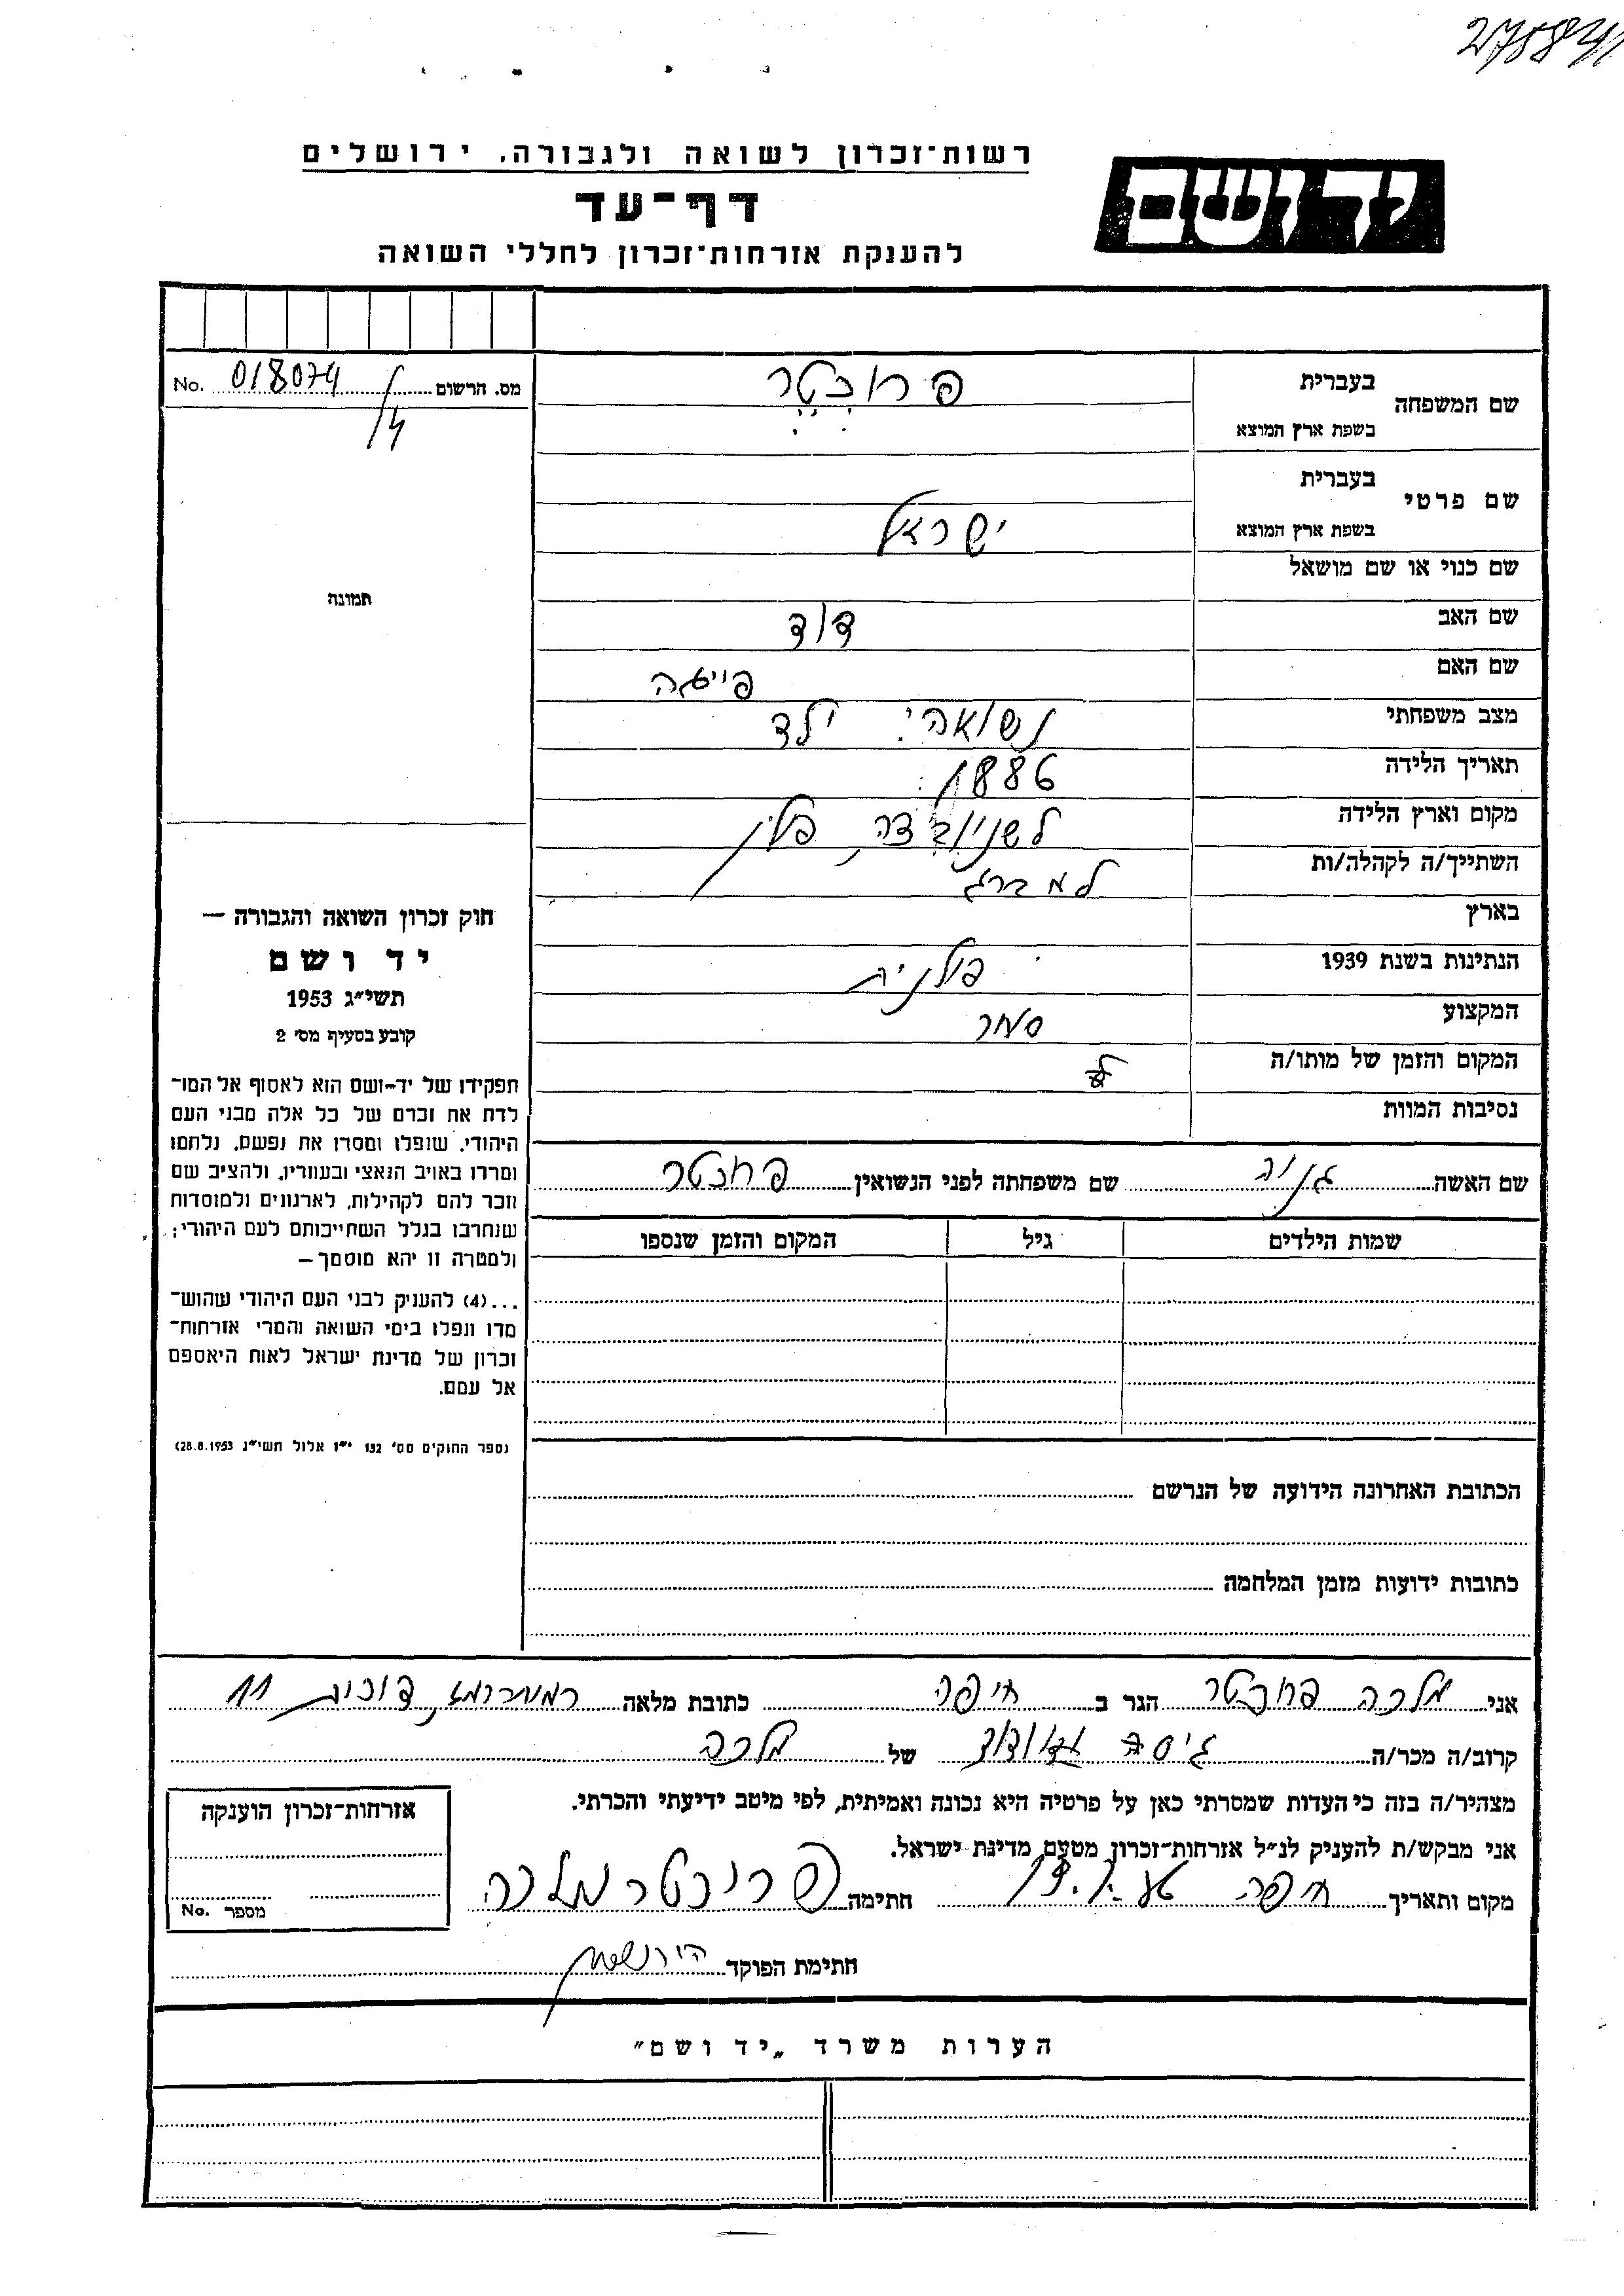 27584
רשות־זכרון לשואה ולגבורה, ירושלים
יד ושם
דף־עד
להענקת אזרחות־זכרון לחללי השואה
מס. הרשום 018074 No.
4/
שם המשפחה
בעברית
פרוכטר
בשפת ארץ המוצא
שם פרטי
בעברית
בשפת ארץ המוצא
ישראל
תמונה
שם כנוי או שם מושאל
שם האב דוד
שם האם פייגה
מצב משפחתי נשואה: ילד
תאריך הלידה 1886
מקום וארץ הלידה פולין
השתייך/ה לקהלה/ות למברג
בארץ
הנתינות בשנת 1939 פולנית
המקצוע סוחר
המקום והזמן של מותו/ה
נסיבות המוות
חוק זכרון השואה והגבורה —
יד ושם
תשי״ג 1953
קובע בסעיף מס׳ 2
תפקידו של יד־ושם הוא לאסוף אל המו־
לדת את זכרם של כל אלה מבני העם
היהודי, שנפלו ומסרו את נפשם, נלחמו
ומרדו באויב הנאצי ובעוזריו, ולהציב שם
וזכר להם לקהילות, לארגונים ולמוסדות
שנחרבו בגלל השתייכותם לעם היהודי;
ולמטרה זו יהא מוסמך —
...(4) להעניק לבני העם היהודי שהוש־
מדו ונפלו בימי השואה והמרי אזרחות־
זכרון של מדינת ישראל לאות היאספם
אל עמם.
(ספר החוקים מס׳ 132 י״ז אלול תשי״ג 28.8.1953)
שם האשה שם משפחתה לפני הנשואין פרוכטר
שמות הילדים גיל המקום והזמן שנספו
הכתובת האחרונה הידועה של הנרשם
כתובות ידועות מזמן המלחמה
אני מלכה פרוכטר הגר ב חיפה כתובת מלאה 11
קרוב/ה מכר/ה גיסה של מלכה
מצהיר/ה בזה כי העדות שמסרתי כאן על פרטיה היא נכונה ואמיתית, לפי מיטב ידיעתי והכרתי.
אני מבקש/ת להעניק לנ״ל אזרחות־זכרון מטעם מדינת ישראל.
מקום ותאריך חיפה חתימה פרוכטר מלכה
חתימת הפוקד
אזרחות־זכרון הוענקה
מספר No.
הערות משרד „יד ושם״